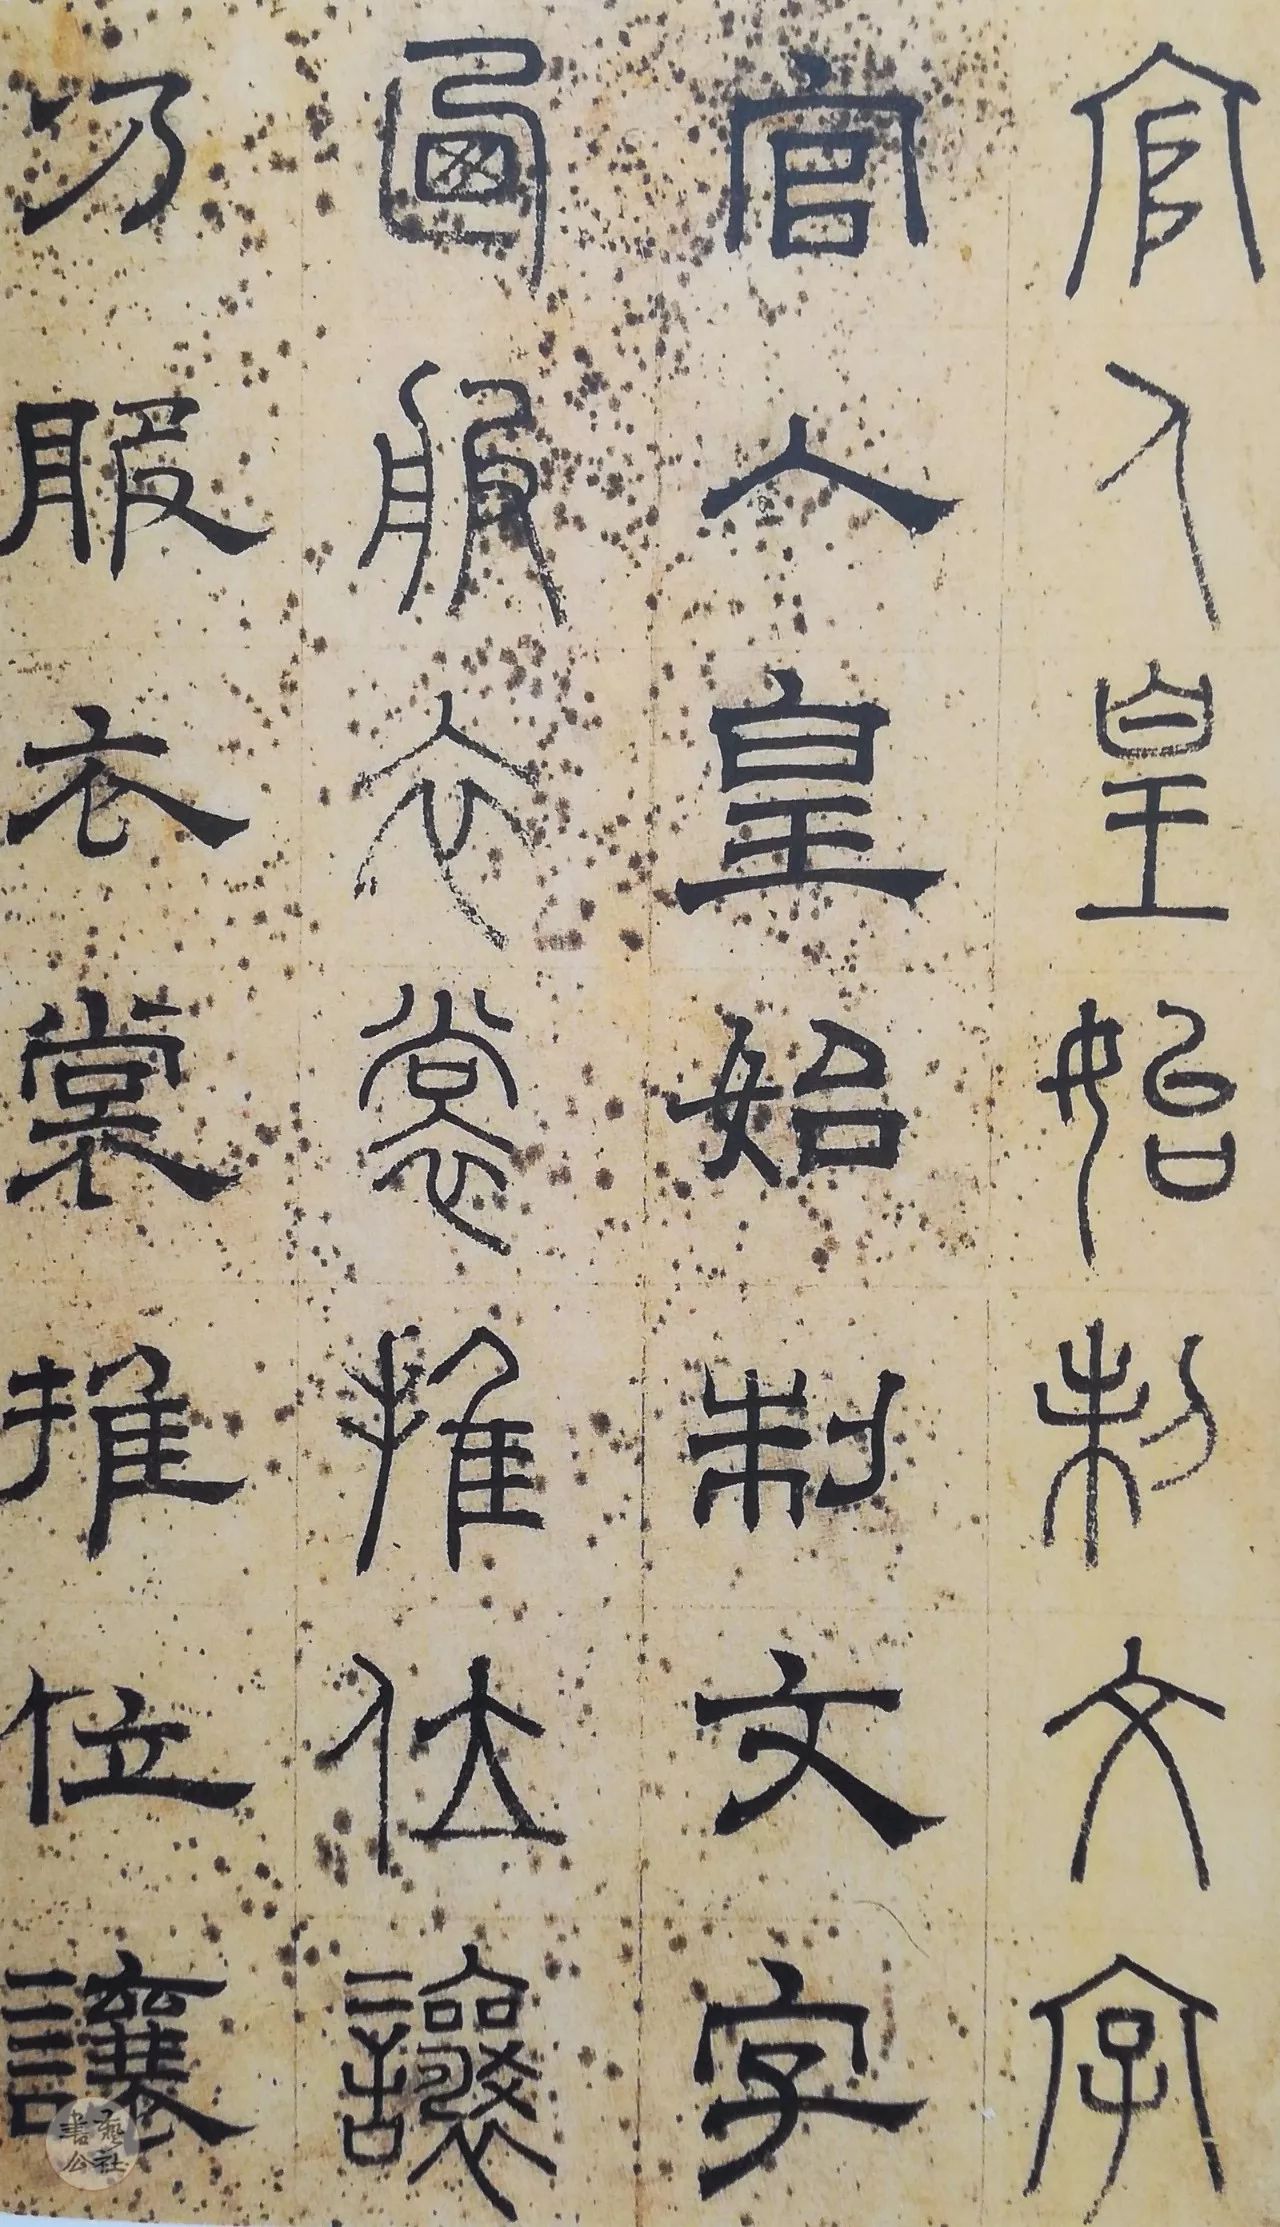 官人皇始制文字
官人皇始制文字
乃服衣裳推位讓
乃服衣裳推位讓
書藝公社